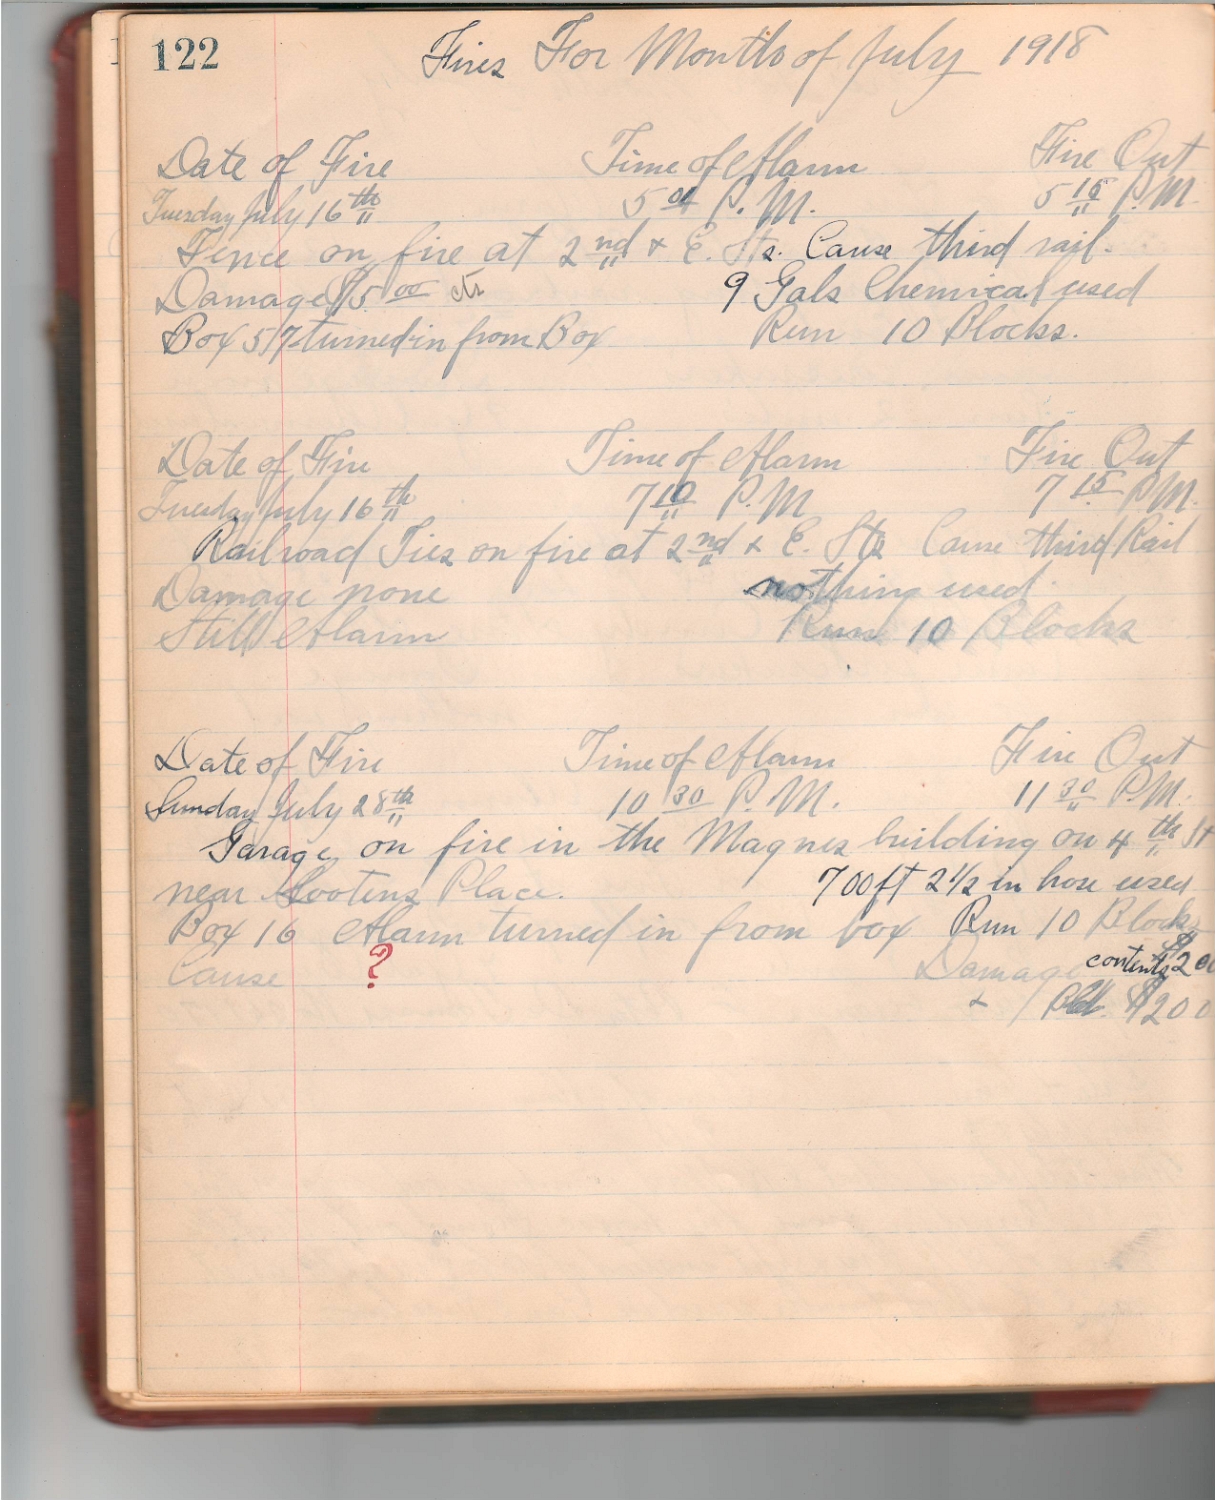 122
Fires For Month of July 1918
Date of Fire Time of Alarm Fire Out
Tuesday July 16th 5 01 P.M. 5 15 P.M.
Fence on fire at 2nd & E. Sts. Cause third rail.
Damage $5.00 9 Gals Chemical used
Box 57 turned in from Box Run 10 Blocks.
Date of Fire Time of Alarm Fire Out
Tuesday July 16th 7 10 P.M 7 15 P.M.
Railroad Ties on fire at 2nd & E. Sts Cause third Rail
Damage none nothing used
Still Alarm Run 10 Blocks
Date of Fire Time of Alarm Fire Out
Sunday July 28th 10 30 P.M. 11 30 P.M.
Garage on fire in the Magnes building on 4th St
near Lootens Place. 700ft 2 1/2 in hose used
Box 16 Alarm turned in from box Run 10 Block
Cause ? Damage contents $200
& Bld. $200